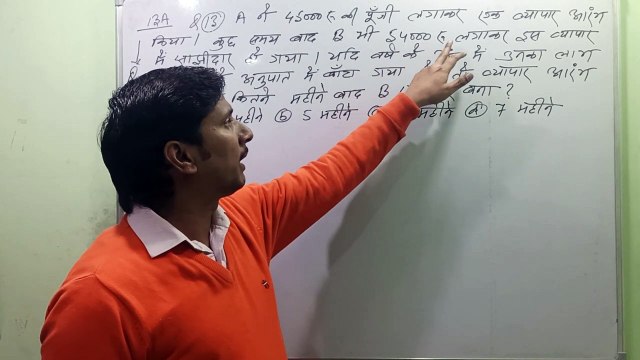 13A & (13) A ने 45000 रु की पूँजी लगाकर एक व्यापार आरंभ
किया। कुछ समय बाद B भी 54000 रु लगाकर इस व्यापार
में साझीदार हो गया। यदि वर्ष के में उनका लाभ
अनुपात में बाँटा गया व्यापार आरंभ
कितने महीने बाद B बना ?
महीने (b) 5 महीने महीने (d) 7 महीने